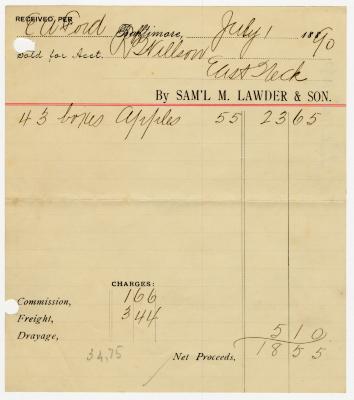 RECEIVED, PER
E W Ford Baltimore, July 1 1890
Sold for Acct. R B Willson
East Neck
By SAM'L M. LAWDER & SON.
43 boxes Apples 55 23 65
CHARGES:
Commission, 1 66
Freight, 3 44
Drayage, 5 10
34,75 Net Proceeds, 18 55